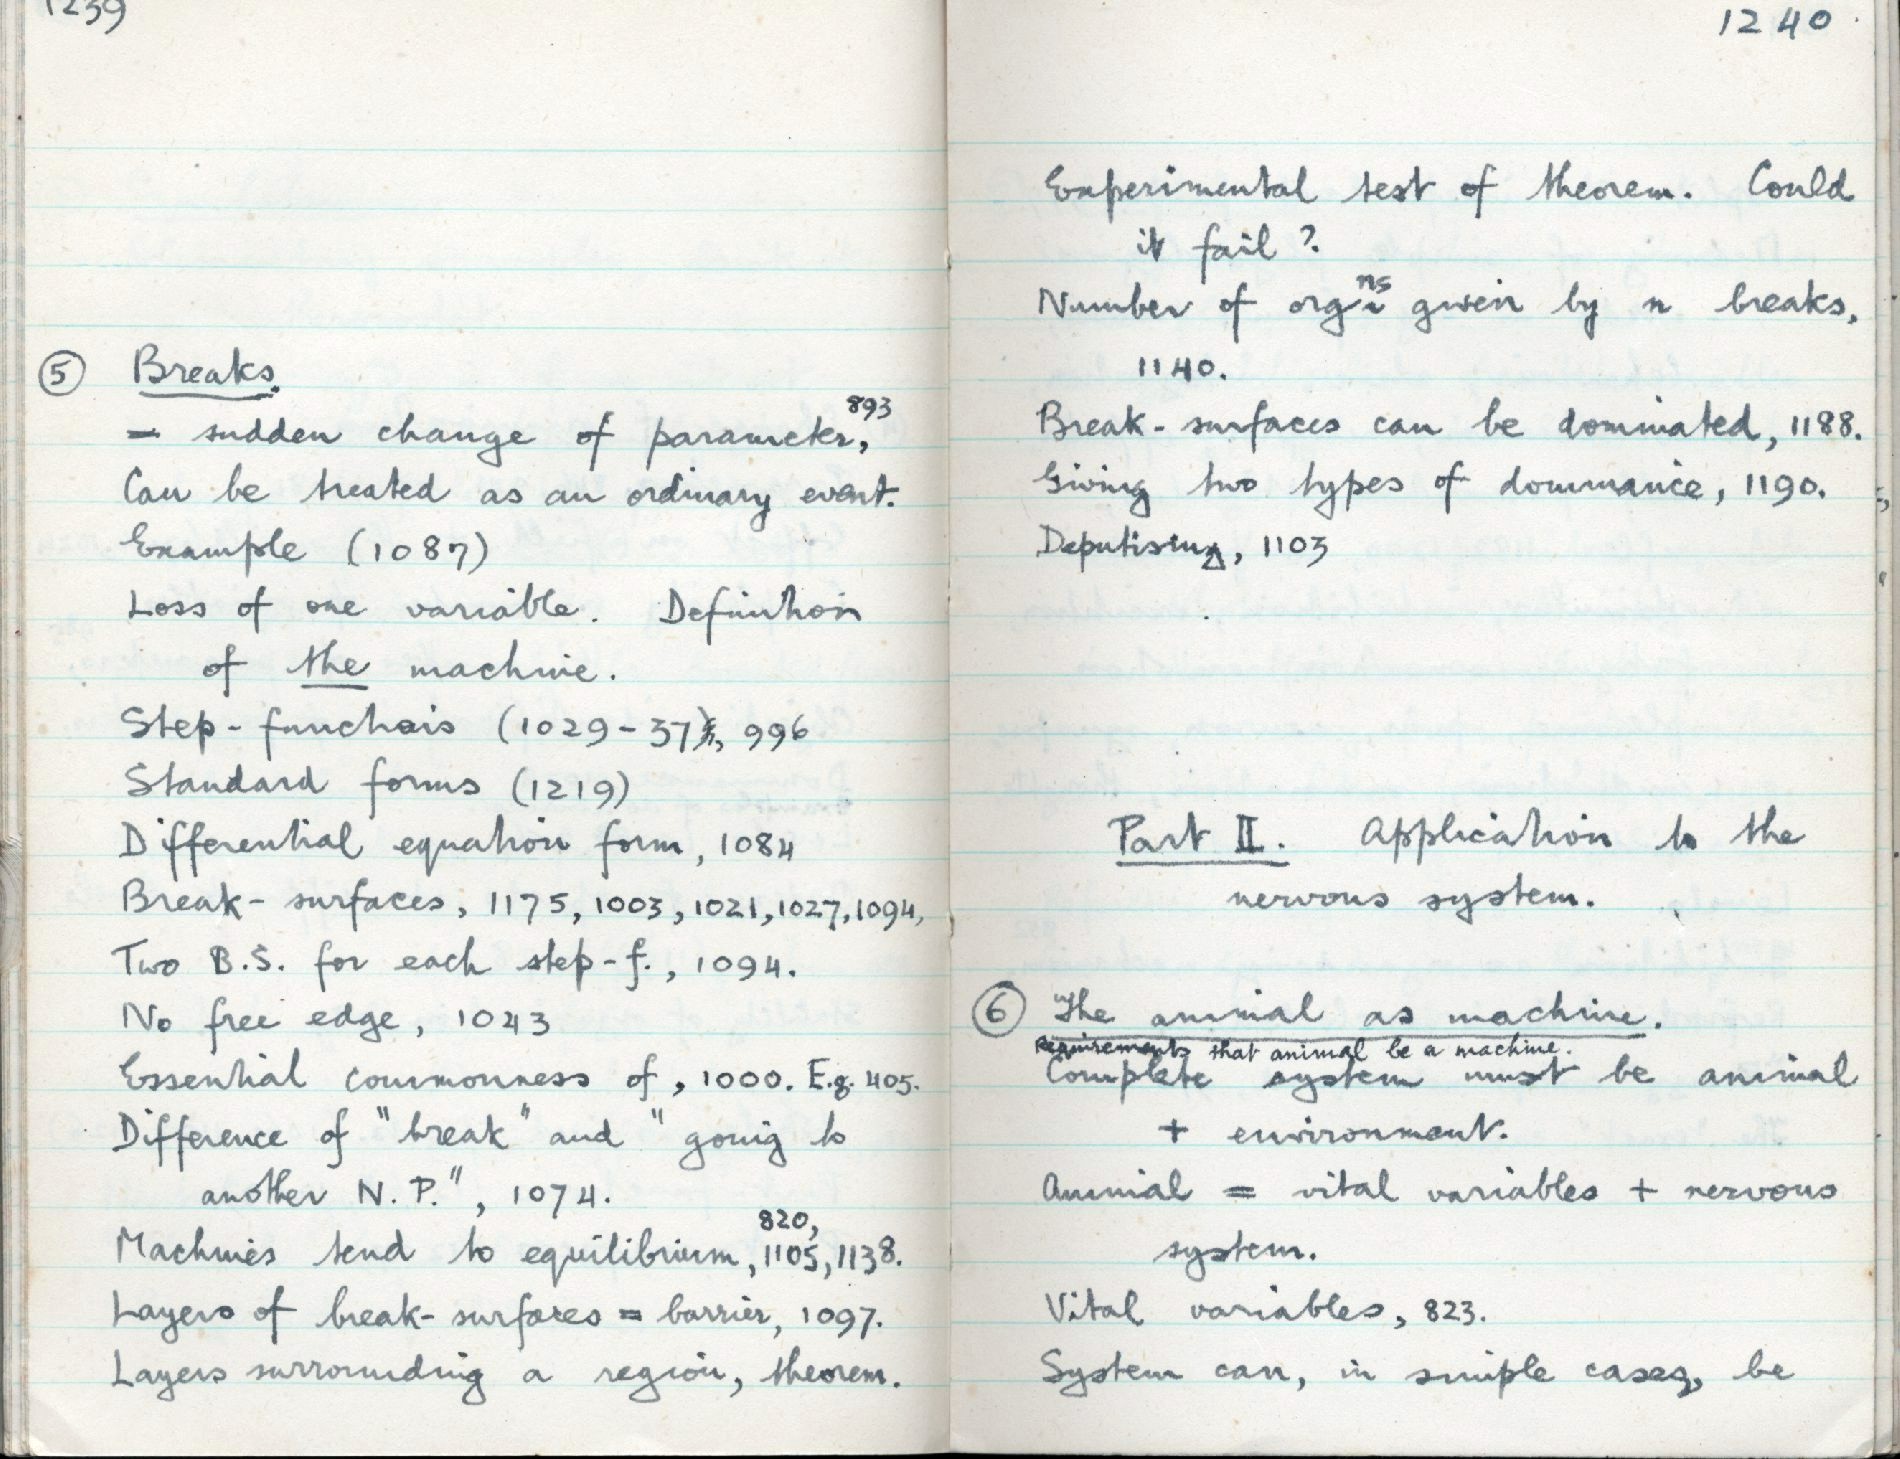 1239
⑤ Breaks.
= sudden change of parameter, 893
Can be treated as an ordinary event.
Example (1087)
Loss of one variable. Definition
of the machine.
Step-functions (1029-37), 996
Standard forms (1219)
Differential equation form, 1084
Break-surfaces, 1175, 1003, 1021, 1027, 1094,
Two B.S. for each step-f., 1094.
No free edge, 1043
Essential commonness of, 1000. E.g. 405.
Difference of "break" and "going to
another N.P.", 1074.
820,
Machines tend to equilibrium, 1105, 1138.
Layers of break-surfaces = barrier, 1097.
Layers surrounding a region, theorem.
1240
Experimental test of theorem. Could
it fail?
Number of orgns given by n breaks,
1140.
Break-surfaces can be dominated, 1188.
Giving two types of dominance, 1190.
Deputising, 1103
Part II. Application to the
nervous system.
⑥ The animal as machine.
Requirements that animal be a machine.
Complete system must be animal
+ environment.
Animal = vital variables + nervous
system.
Vital variables, 823.
System can, in simple cases, be